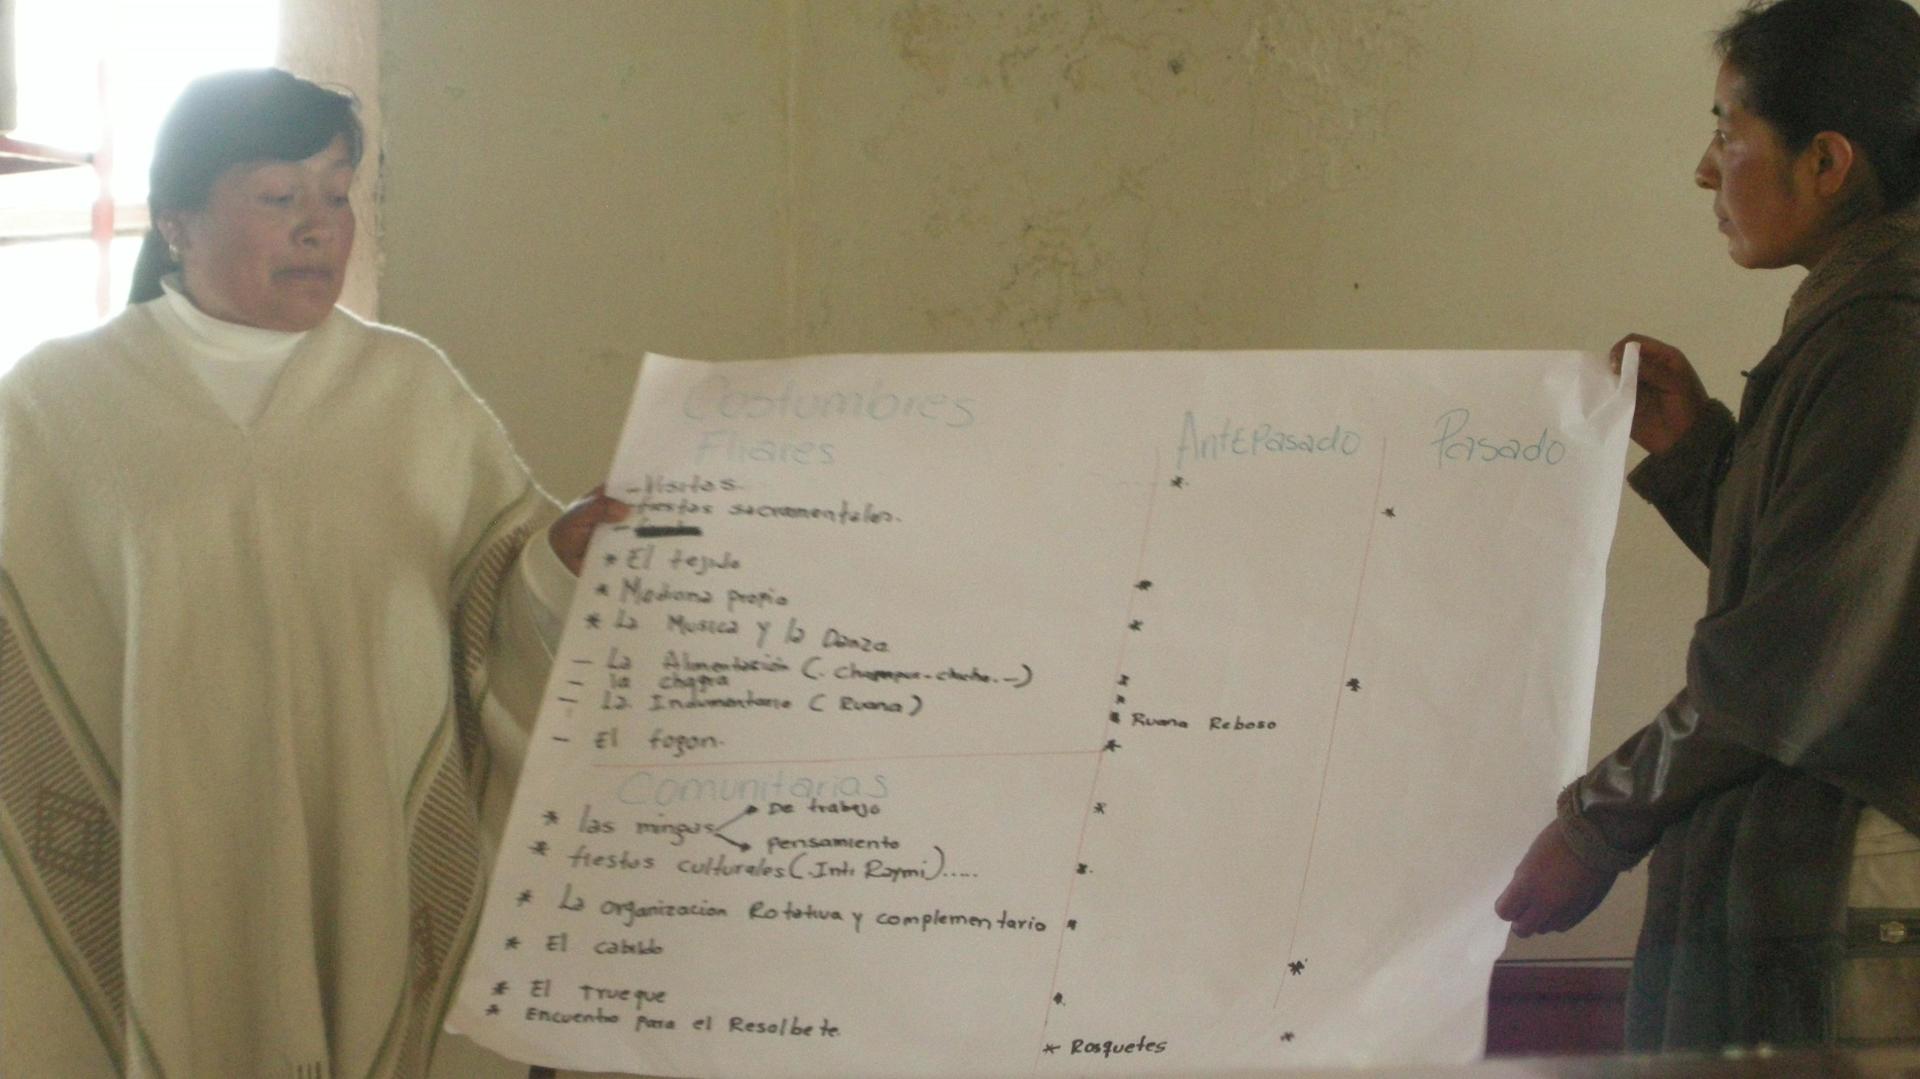 Costumbres
Fliares
Antepasado
Pasado
- Visitas
- fiestas sacramentales.
* El tejido
* Medicina propia
* La Musica y la Danza
- La Alimentación (. - chicha. -)
- la chagra
- La Indumentaria (Ruana)
Ruana Reboso
- El fogon.
Comunitarias
* las mingas
De trabajo
pensamiento
* fiestas culturales (.Inti Raymi).....
* La organizacion Rotativa y complementario
* El cabildo
* El Trueque
* Encuentro para el Resolbete
* Rosquetes